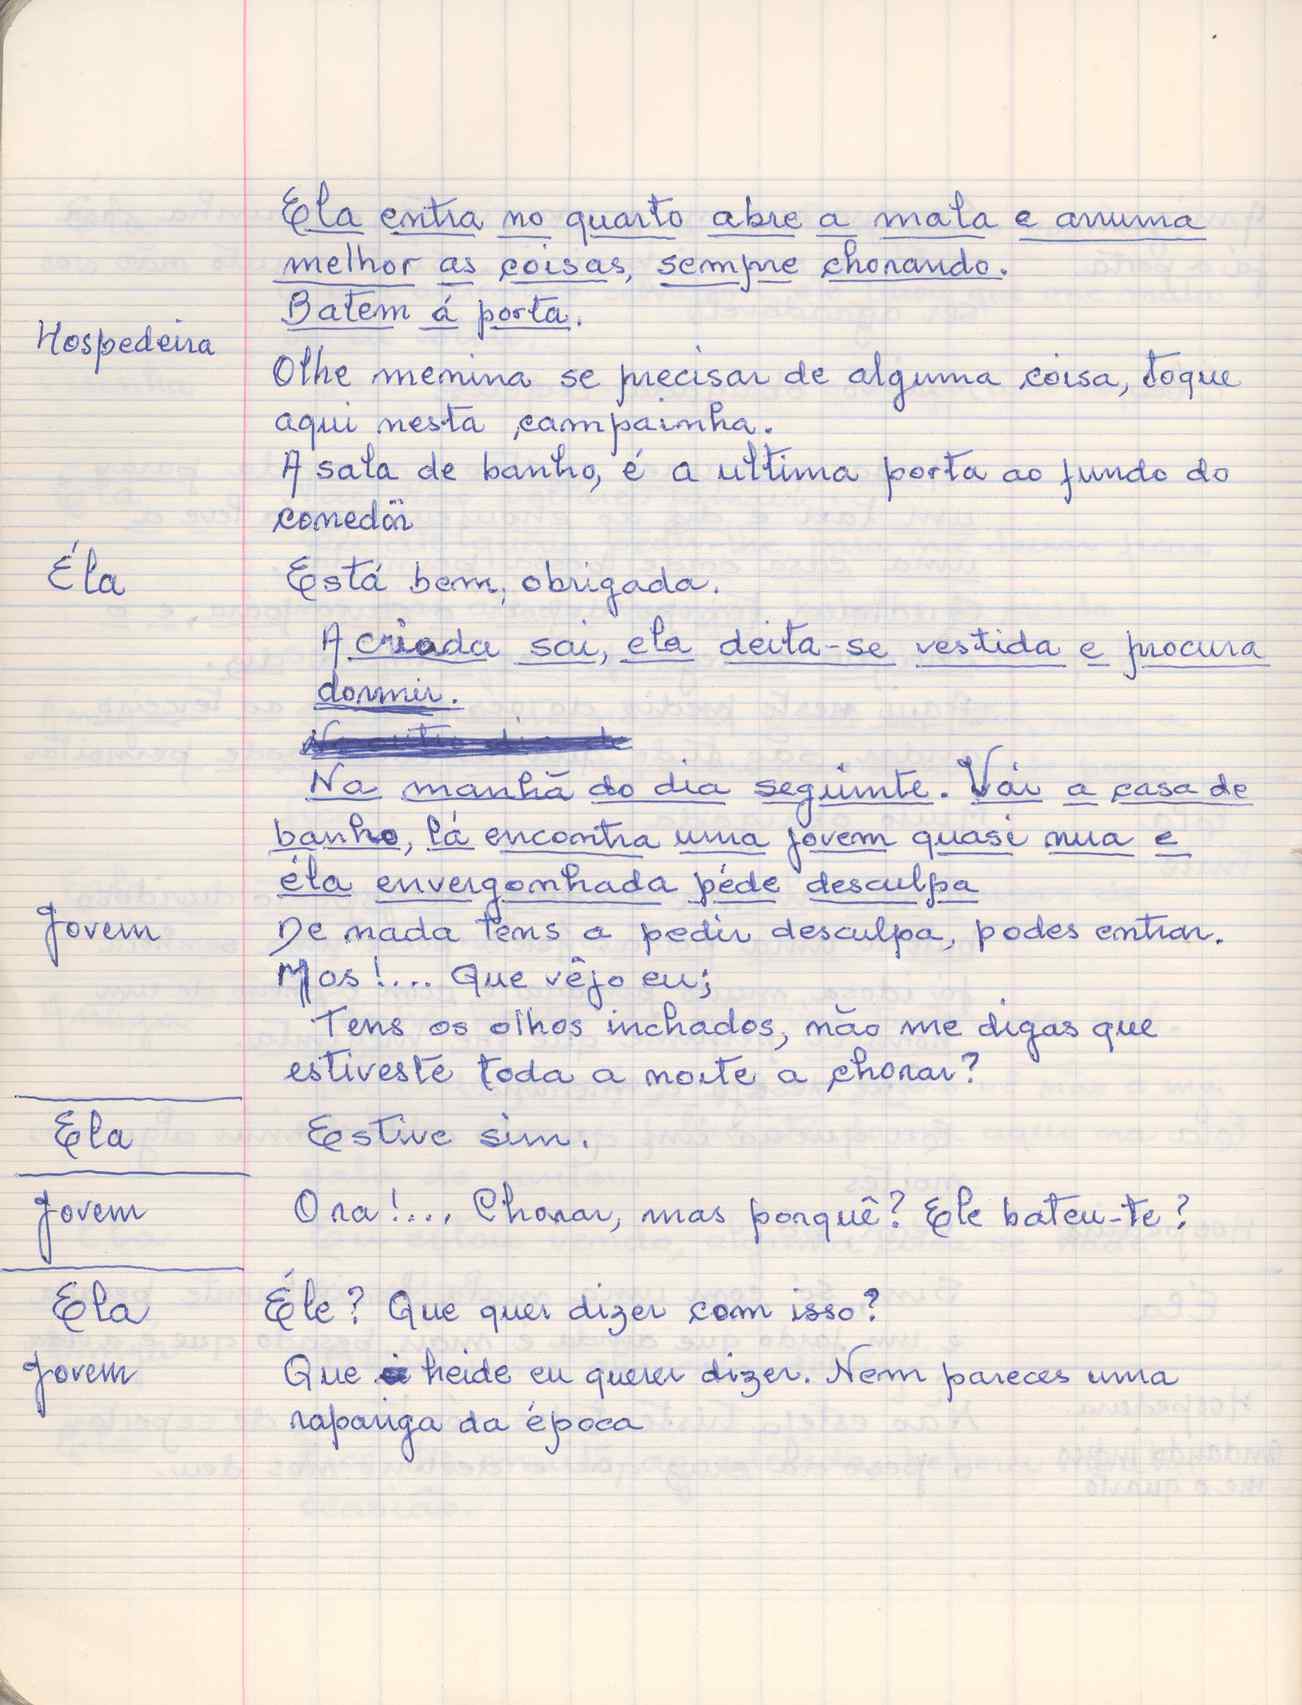 Ela entra no quarto abre a mala e arruma
melhor as coisas, sempre chorando.
Batem á porta.
Hospedeira
Olhe menina se precisar de alguma coisa, toque
aqui nesta campainha.
A sala de banho, é a ultima porta ao fundo do
corredôr
Éla Está bem, obrigada.
A criada sai, ela deita-se vestida e procura
dormir.
Na manhã do dia seguinte. Vái a casa de
banho, lá encontra uma jovem quasi nua e
éla envergonhada péde desculpa
Jovem De nada tens a pedir desculpa, podes entrar.
Mas!... Que vêjo eu;
Tens os olhos inchados, não me digas que
estiveste toda a noite a chorar?
Ela Estive sim.
Jovem Ora!... Chorar, mas porquê? Ele bateu-te?
Ela Éle? Que quer dizer com isso?
Jovem Que heide eu querer dizer. Nem pareces uma
rapariga da época